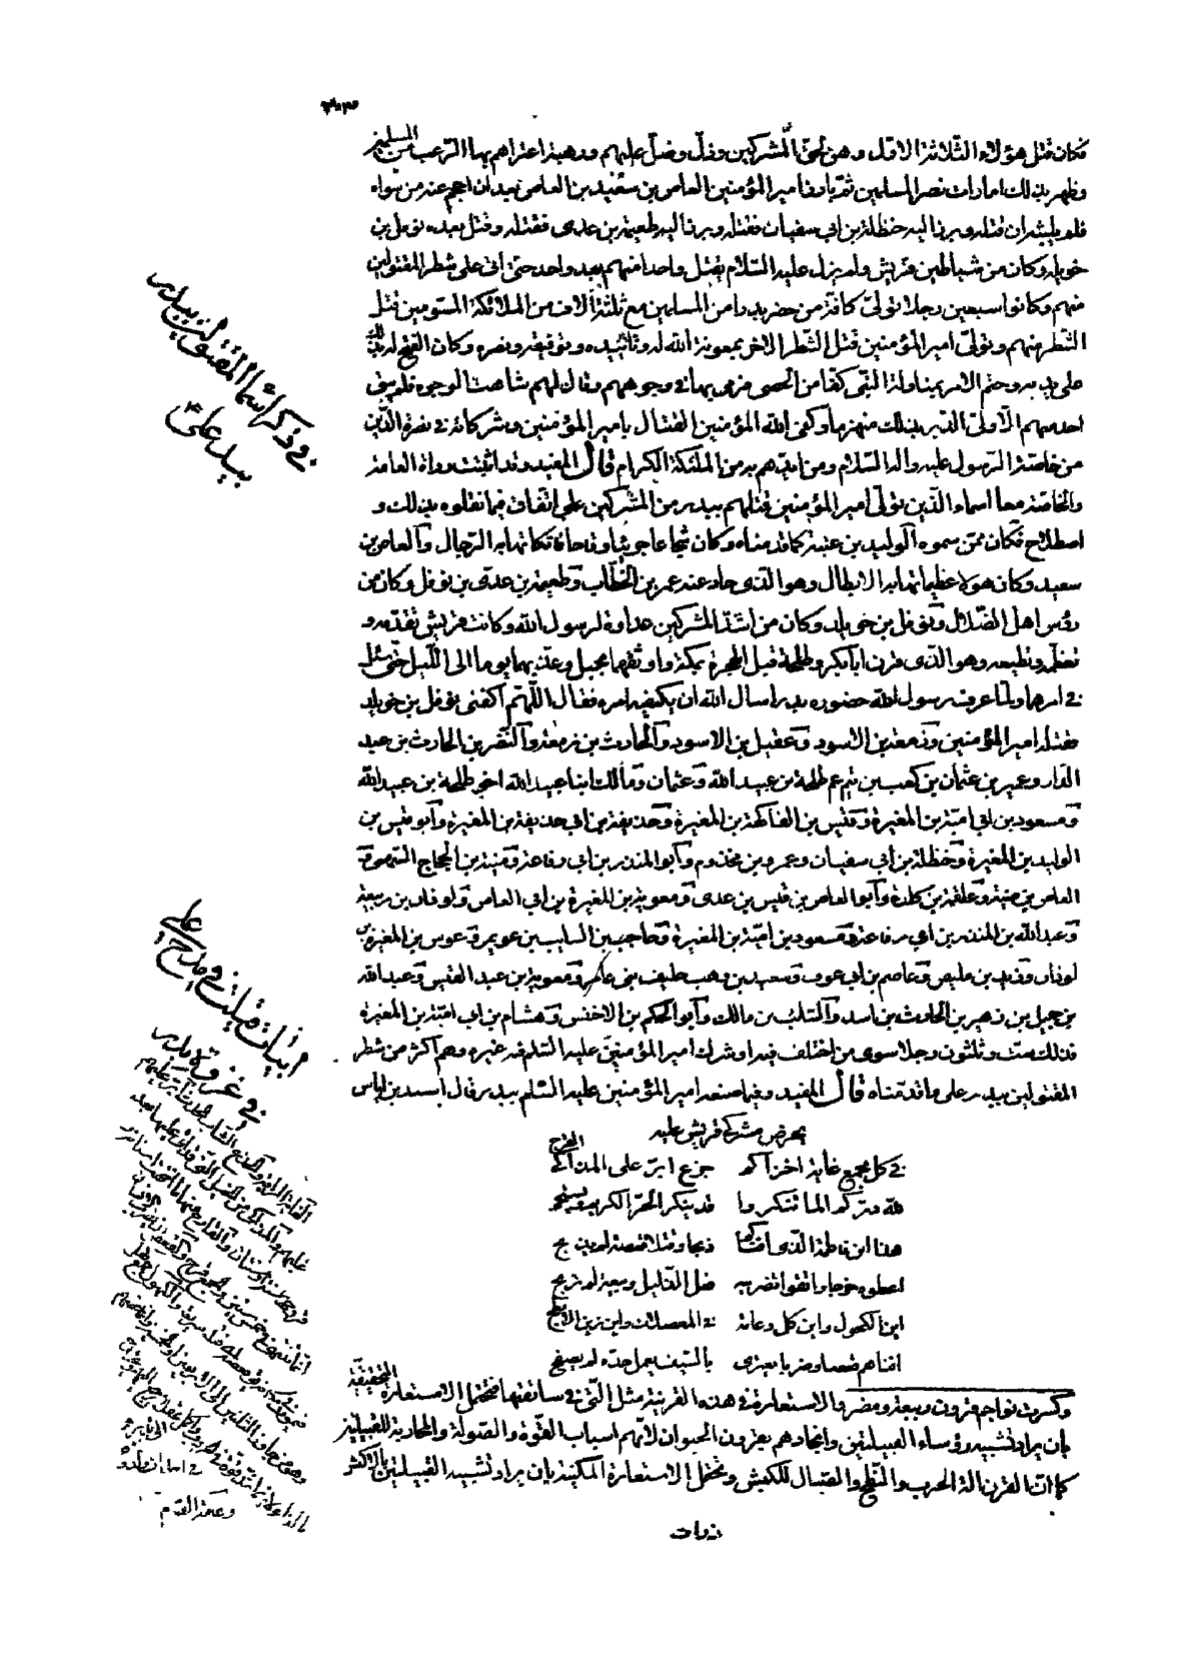 فكان قتل هؤلاء الثلاثة اول وهن لحق المشركين وذل دخل عليهم ورهبة اعتراهم بها الرعب من المسلمين
وظهر بذلك امارات نصر المسلمين ثم بارز امير المؤمنين العاص بن سعيد بن العاص بعد ان احجم عنه من سواه
فلم يلبث ان قتله وبرز اليه حنظلة بن ابي سفيان فقتله وبرز اليه طعيمة بن عدى فقتله وقتل بعده نوفل بن
خويلد وكان من شياطين قريش ولم يزل عليه السلام يقتل واحدا منهم بعد واحد حتى اتى على شطر المقتولين
منهم وكانوا سبعين رجلا تولى كافة من حضر بدرا من المسلمين مع ثلثة آلاف من الملائكة المسومين قتل
الشطر منهم وتولى امير المؤمنين قتل الشطر الاخر بمعونة الله له وتأييده وتوفيقه ونصره وكان الفتح له بذلك
على يديه وختم الامر بمناولة النبي كفا من الحصى فرمى بها في وجوههم وقال لهم شاهت الوجوه فلم يبق
احد منهم الا ولى الدبر بذلك منهزما وكفى الله المؤمنين القتال بامير المؤمنين وشركائه في نصرة الدين
من خاصة الرسول عليه واله السلام ومن ايدهم به من الملئكة الكرام قال المفيد وقد اثبتت رواة العامة
والخاصة معا اسماء الذين تولى امير المؤمنين قتلهم ببدر من المشركين على اتفاق فيما نقلوه بذلك و
اصطلاح فكان ممن سموه الوليد بن عتبة كما قدمناه وكان شجاعا جريئا وقاحا فتاكا تهابه الرجال والعاص بن
سعيد وكان هولا عظيما تهابه الابطال وهو الذى حاد عنه عمر بن الخطاب وطعيمة بن عدى بن نوفل وكان من
رؤس اهل الضلال ونوفل بن خويلد وكان من اشد المشركين عداوة لرسول الله وكانت قريش تقدمه و
تعظمه وتطيعه وهو الذى قرن ابابكر وطلحة قبل الهجرة بمكة واوثقهما بحبل وعذبهما يوما الى الليل حتى سئل
في امرهما ولما عرف رسول الله حضوره بدرا سال الله ان يكفيه امره فقال اللهم اكفنى نوفل بن خويلد
فقتله امير المؤمنين وزمعة بن الاسود وعقيل بن الاسود والحارث بن زمعة والنضر بن الحارث بن عبد
الدار وعمير بن عثمان بن كعب بن تيم عم طلحة بن عبيد الله وعثمان ومالك ابنا عبيد الله اخوى طلحة بن عبيد الله
ومسعود بن ابي امية بن المغيرة وقيس بن الفاكهة بن المغيرة وحذيفة بن ابي حذيفة بن المغيرة وابو قيس بن
الوليد بن المغيرة وحنظلة بن ابي سفيان وعمرو بن مخزوم وابو المنذر بن ابي رفاعة ومنبه بن الحجاج السهمى و
العاص بن منبه وعلقمة بن كلدة وابو العاص بن قيس بن عدى ومعوية بن المغيرة بن ابي العاص ولوذان بن ربيعة
وعبد الله بن المنذر بن ابي رفاعة ومسعود بن امية بن المغيرة وحاجب بن السايب بن عويمر وعوس بن المغيرة بن
لوذان وزيد بن مليص وعاصم بن ابي عوف وسعيد بن وهب حليف بنى عامر ومعوية بن عبد القيس وعبد الله
بن جميل بن زهير بن الحارث بن اسد والسائب بن مالك وابو الحكم بن الاخنس وهشام بن ابي امية بن المغيرة
فذلك ست وثلثون رجلا سوى من اختلف فيه او شرك امير المؤمنين عليه السلم فيه غيره وهم اكثر من شطر
المقتولين ببدر على ما قدمناه قال المفيد وفيما صنعه امير المؤمنين عليه السلم ببدر قال اسيد بن اياس
يحرض مشركي قريش عليه
في كل مجمع غاية اخزاكم جزع ابر على المذاكي القرح
لله دركم المّا تنكروا قد ينكر الحر الكريم ويستحى
هذا ابن فاطمة الذى افناكم ذبحا وقتلا قعصة لم يذبح
اعطوه خرجا واتقوا تضريبه فعل الذليل وبيعة لم تربح
اين الكهول واين كل دعامة في المعضلات واين زين الابطح
افناهم قعصا وضربا يفترى بالسيف يعمل حده لم يصفح
وكسرت نواجم قرون ربيعة ومضر والاستعارة في هذه القرينة مثل التى في سابقتها فتحتمل الاستعارة التحقيقية
بان يراد تشبيه رؤساء القبيلتين وانجادهم بقرون الحيوان لانهم اسباب القوة والصولة والمحاربة للقبيلتين
كما ان القرن الة الحرب والنطح والقتال للكبش وتحتمل الاستعارة المكنية بان يراد تشبيه القبيلتين بالاكثر
ذوات
في ذكر اسماء المقتولين ببدر
بيد علي ع
ابيات قيلت في مدح علي
في غزوة بدر